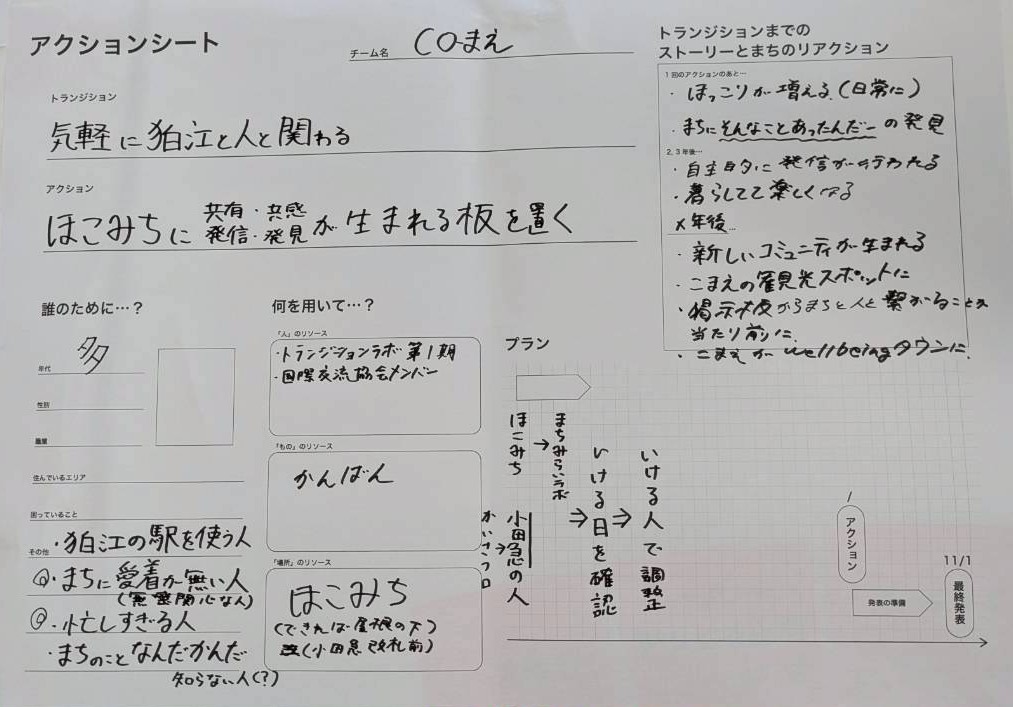 アクションシート
チーム名 COまえ
トランジション
気軽に狛江と人と関わる
アクション
ほこみちに 共有・共感 発信・発見 が生まれる板を置く
トランジションまでの
ストーリーとまちのリアクション
1回のアクションのあと…
・ほっこりが増える(日常に)
・まちにそんなことあったんだーの発見
2,3年後…
・自主的に発信が行われる
・暮らしてて楽しくなる
X年後…
・新しいコミュニティが生まれる
・こまえの観光スポットに
・掲示板からまちと人と繋がることが
当たり前に
・こまえがwellbeingタウンに
誰のために…?
年代 多
性別
職業
住んでいるエリア
困っていること
その他
・狛江の駅を使う人
・まちに愛着が無い人
(無関心な人)
・忙しすぎる人
・まちのことなんだかんだ
知らない人(?)
何を用いて…?
「人」のリソース
・トランジションラボ第1期
・国際交流協会メンバー
「もの」のリソース
かんばん
「場所」のリソース
ほこみち
(できれば屋根の下)
(小田急改札前)
プラン
ほこみち
→
まちみらいラボ
小田急の人
⇒
いける日を確認
⇒
いける人で調整
/
アクション
発表の準備
11/1
最終発表